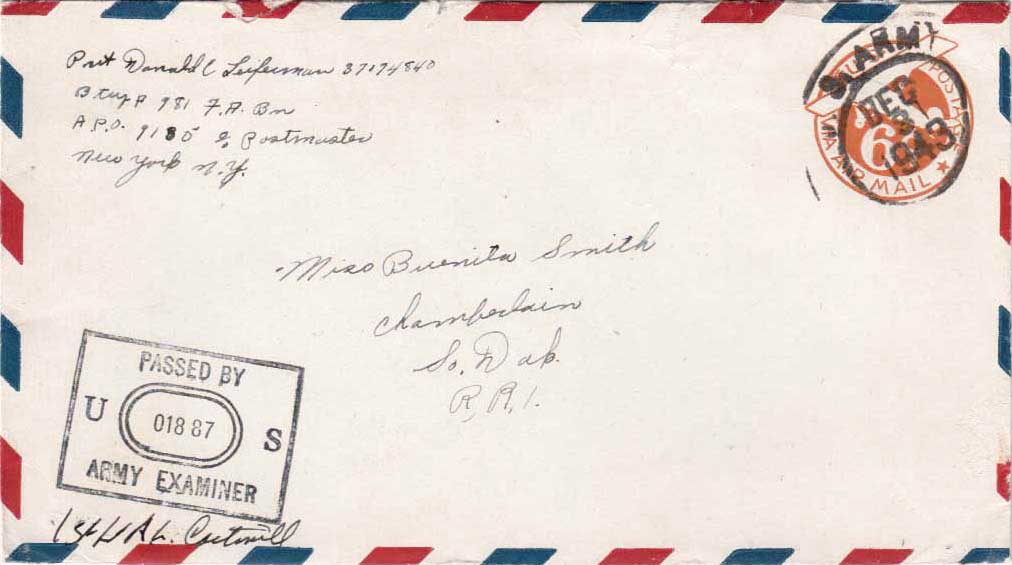 Pvt Donald C Leiferman 37174840
Btry A 981 F.A. Bn
A.P.O. 9185 c/o Postmaster
New York N.Y.
U.S. ARMY
DEC
31
1943
POSTAGE
6¢
VIA AIR MAIL
Miss Buenita Smith
Chamberlain
So. Dak.
R.R.1.
PASSED BY
U 01887 S
ARMY EXAMINER
1st Lt R L.